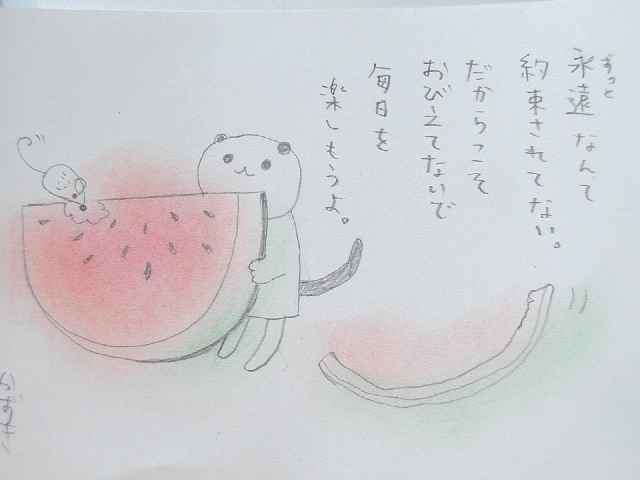 ずっと
永遠なんて
約束されてない。
だからこそ
おびえてないで
毎日を
楽しもうよ。